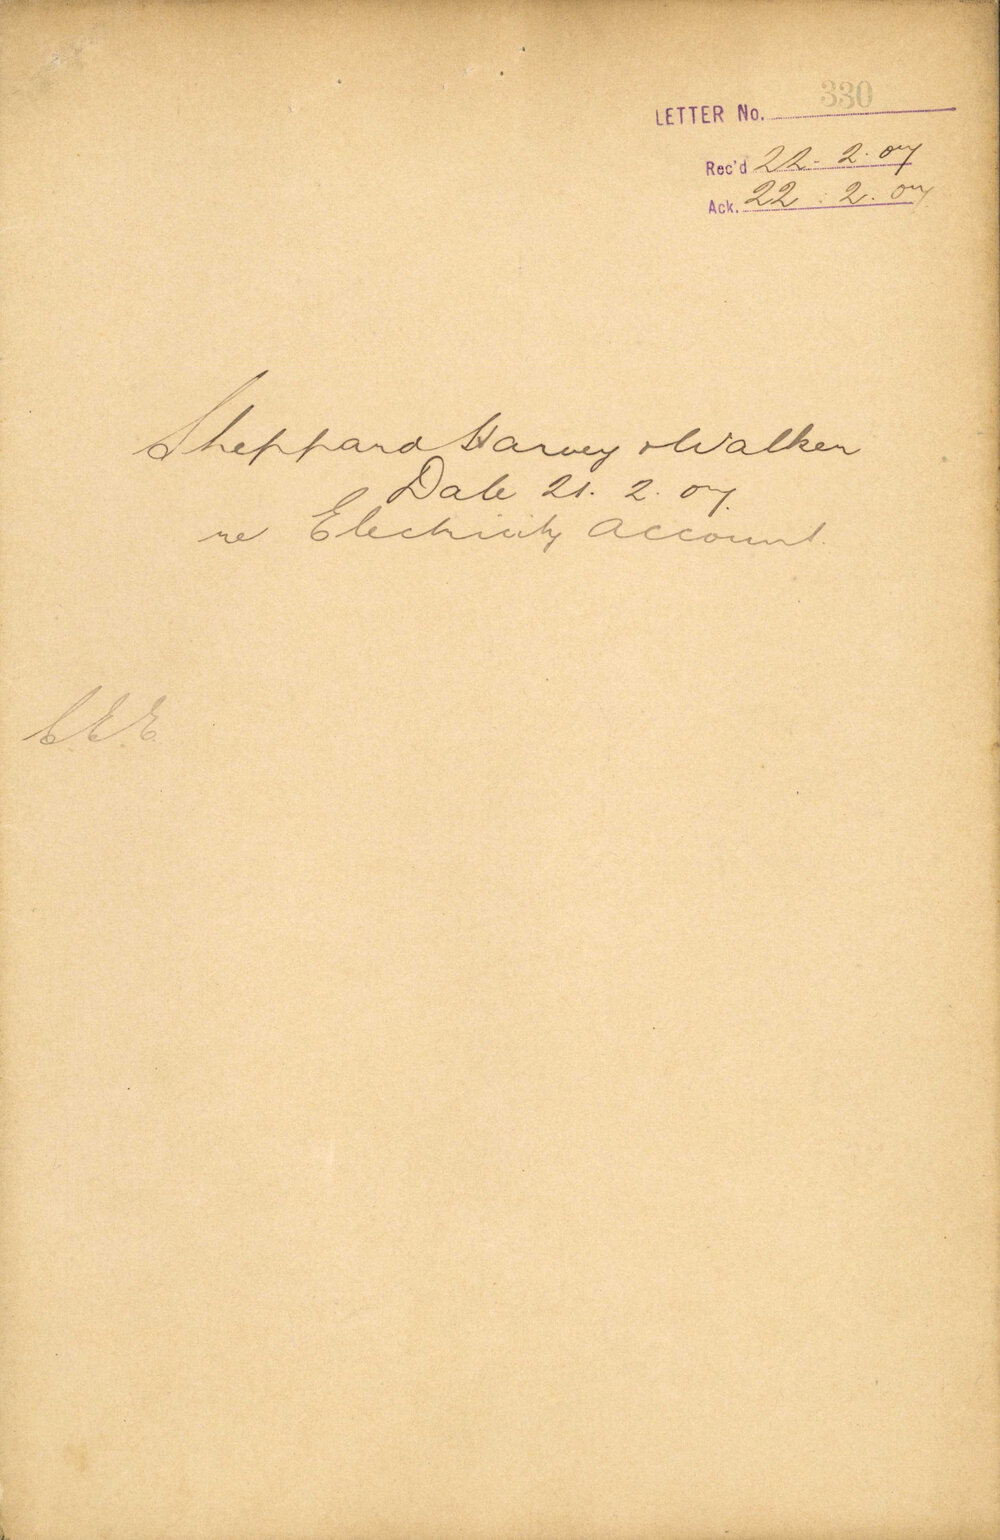 LETTER No. 330
Rec'd 22. 2. 07
Ack. 22. 2. 07
Sheppard Harvey & Walker
Date 21. 2. 07.
re Electricity Account.
C.E.E.